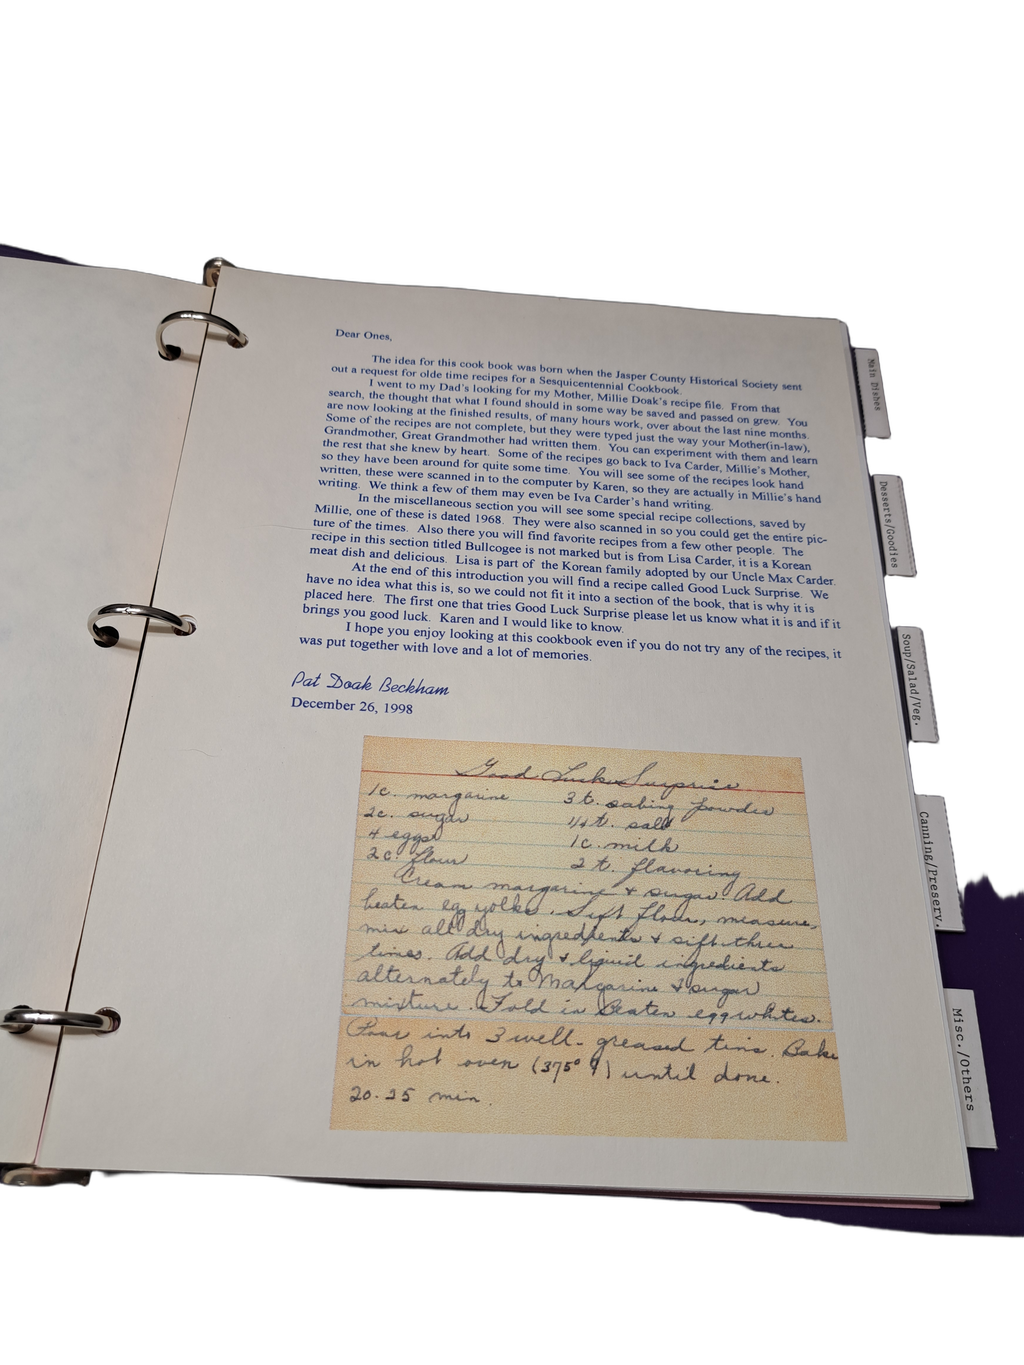 Dear Ones,
The idea for this cook book was born when the Jasper County Historical Society sent
out a request for olde time recipes for a Sesquicentennial Cookbook.
I went to my Dad's looking for my Mother, Millie Doak's recipe file. From that
search, the thought that what I found should in some way be saved and passed on grew. You
are now looking at the finished results, of many hours work, over about the last nine months.
Some of the recipes are not complete, but they were typed just the way your Mother(in-law),
Grandmother, Great Grandmother had written them. You can experiment with them and learn
the rest that she knew by heart. Some of the recipes go back to Iva Carder, Millie's Mother,
so they have been around for quite some time. You will see some of the recipes look hand
written, these were scanned in to the computer by Karen, so they are actually in Millie's hand
writing. We think a few of them may even be Iva Carder's hand writing.
In the miscellaneous section you will see some special recipe collections, saved by
Millie, one of these is dated 1968. They were also scanned in so you could get the entire pic-
ture of the times. Also there you will find favorite recipes from a few other people. The
recipe in this section titled Bullcogee is not marked but is from Lisa Carder, it is a Korean
meat dish and delicious. Lisa is part of the Korean family adopted by our Uncle Max Carder.
At the end of this introduction you will find a recipe called Good Luck Surprise. We
have no idea what this is, so we could not fit it into a section of the book, that is why it is
placed here. The first one that tries Good Luck Surprise please let us know what it is and if it
brings you good luck. Karen and I would like to know.
I hope you enjoy looking at this cookbook even if you do not try any of the recipes, it
was put together with love and a lot of memories.
Pat Doak Beckham
December 26, 1998
Good Luck Surprise
1c. margarine 3 t. baking powder
2c. sugar 1/4 t. salt
4 eggs 1c. milk
2c. flour 2 t. flavoring
Cream margarine & sugar. Add
beaten eg yolks. Sift flour, measure,
mix all dry ingredients & sift three
times. Add dry & liquid ingredients
alternately to Margarine & sugar
mixture. Fold in Beaten egg whites.
Pour into 3 well-greased tins. Bake
in hot oven (375° F) until done.
20-25 min.
Main Dishes
Desserts/Goodies
Soup/Salad/Veg.
Canning/Preserv.
Misc./Others